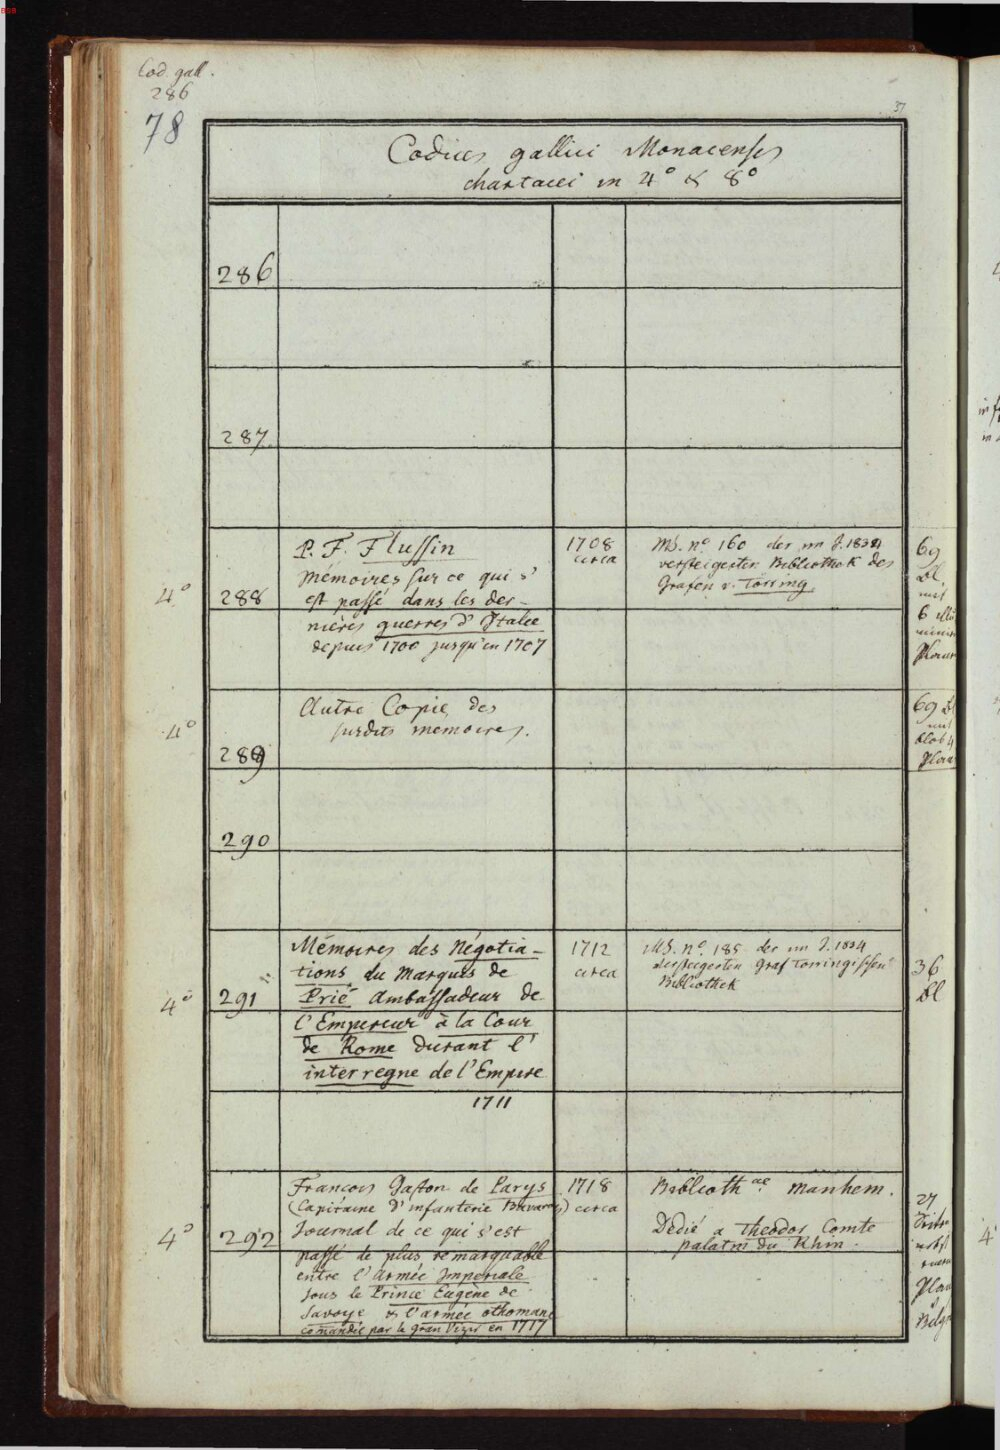 Cod. gall.
286
78
37
Codices gallici Monacenses
chartacei in 4° & 8°
286
287
4°
288
P. F. Flussin
Mémoires sur ce qui s'
est passé dans les der-
nières guerres d'Italie
depuis 1700 jusqu'en 1707
1708
circa
MS. n° 160 der im J. 1834
versteigerten Bibliothek des
Grafen v. Törring
69
Bl.
mit
6 illu
minir
Planen
4°
289
Autre Copie des
susdits memoires.
69 Bl
mit
blos 4
Plan
290
4°
291
Mémoires des Négotia-
tions du Marquis de
Prié Ambassadeur de
l'Empereur à la Cour
de Rome durant l'
interregne de l'Empire
1711
1712
circa
MS. n°. 185 der im J. 1834
versteigerten Graf Törringischen
Bibliothek
36
Bl
4°
292
Francois Gaston de Larys
(Capitaine d'infanterie Bavarois)
Journal de ce qui s'est
passé de plus remarquable
entre l'Armée Imperiale
sous le Prince Eugène de
Savoye & l'armée othomane
comandée par le gran Vizir en 1717
1718
circa
Biblioth ae manhem.
Dedié a Theodor Comte
palatin du Rhin.
27
Plan
v.
Belgr